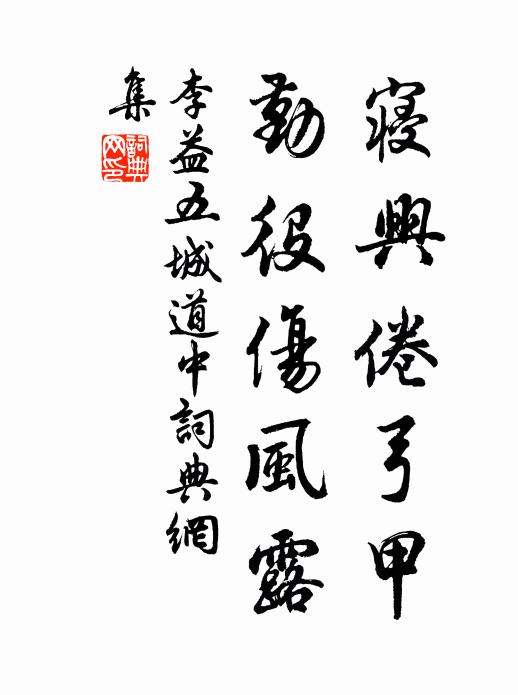 寢興倦弓甲
勤役傷風露
李益五城道中詞典網
集
詞典
网印